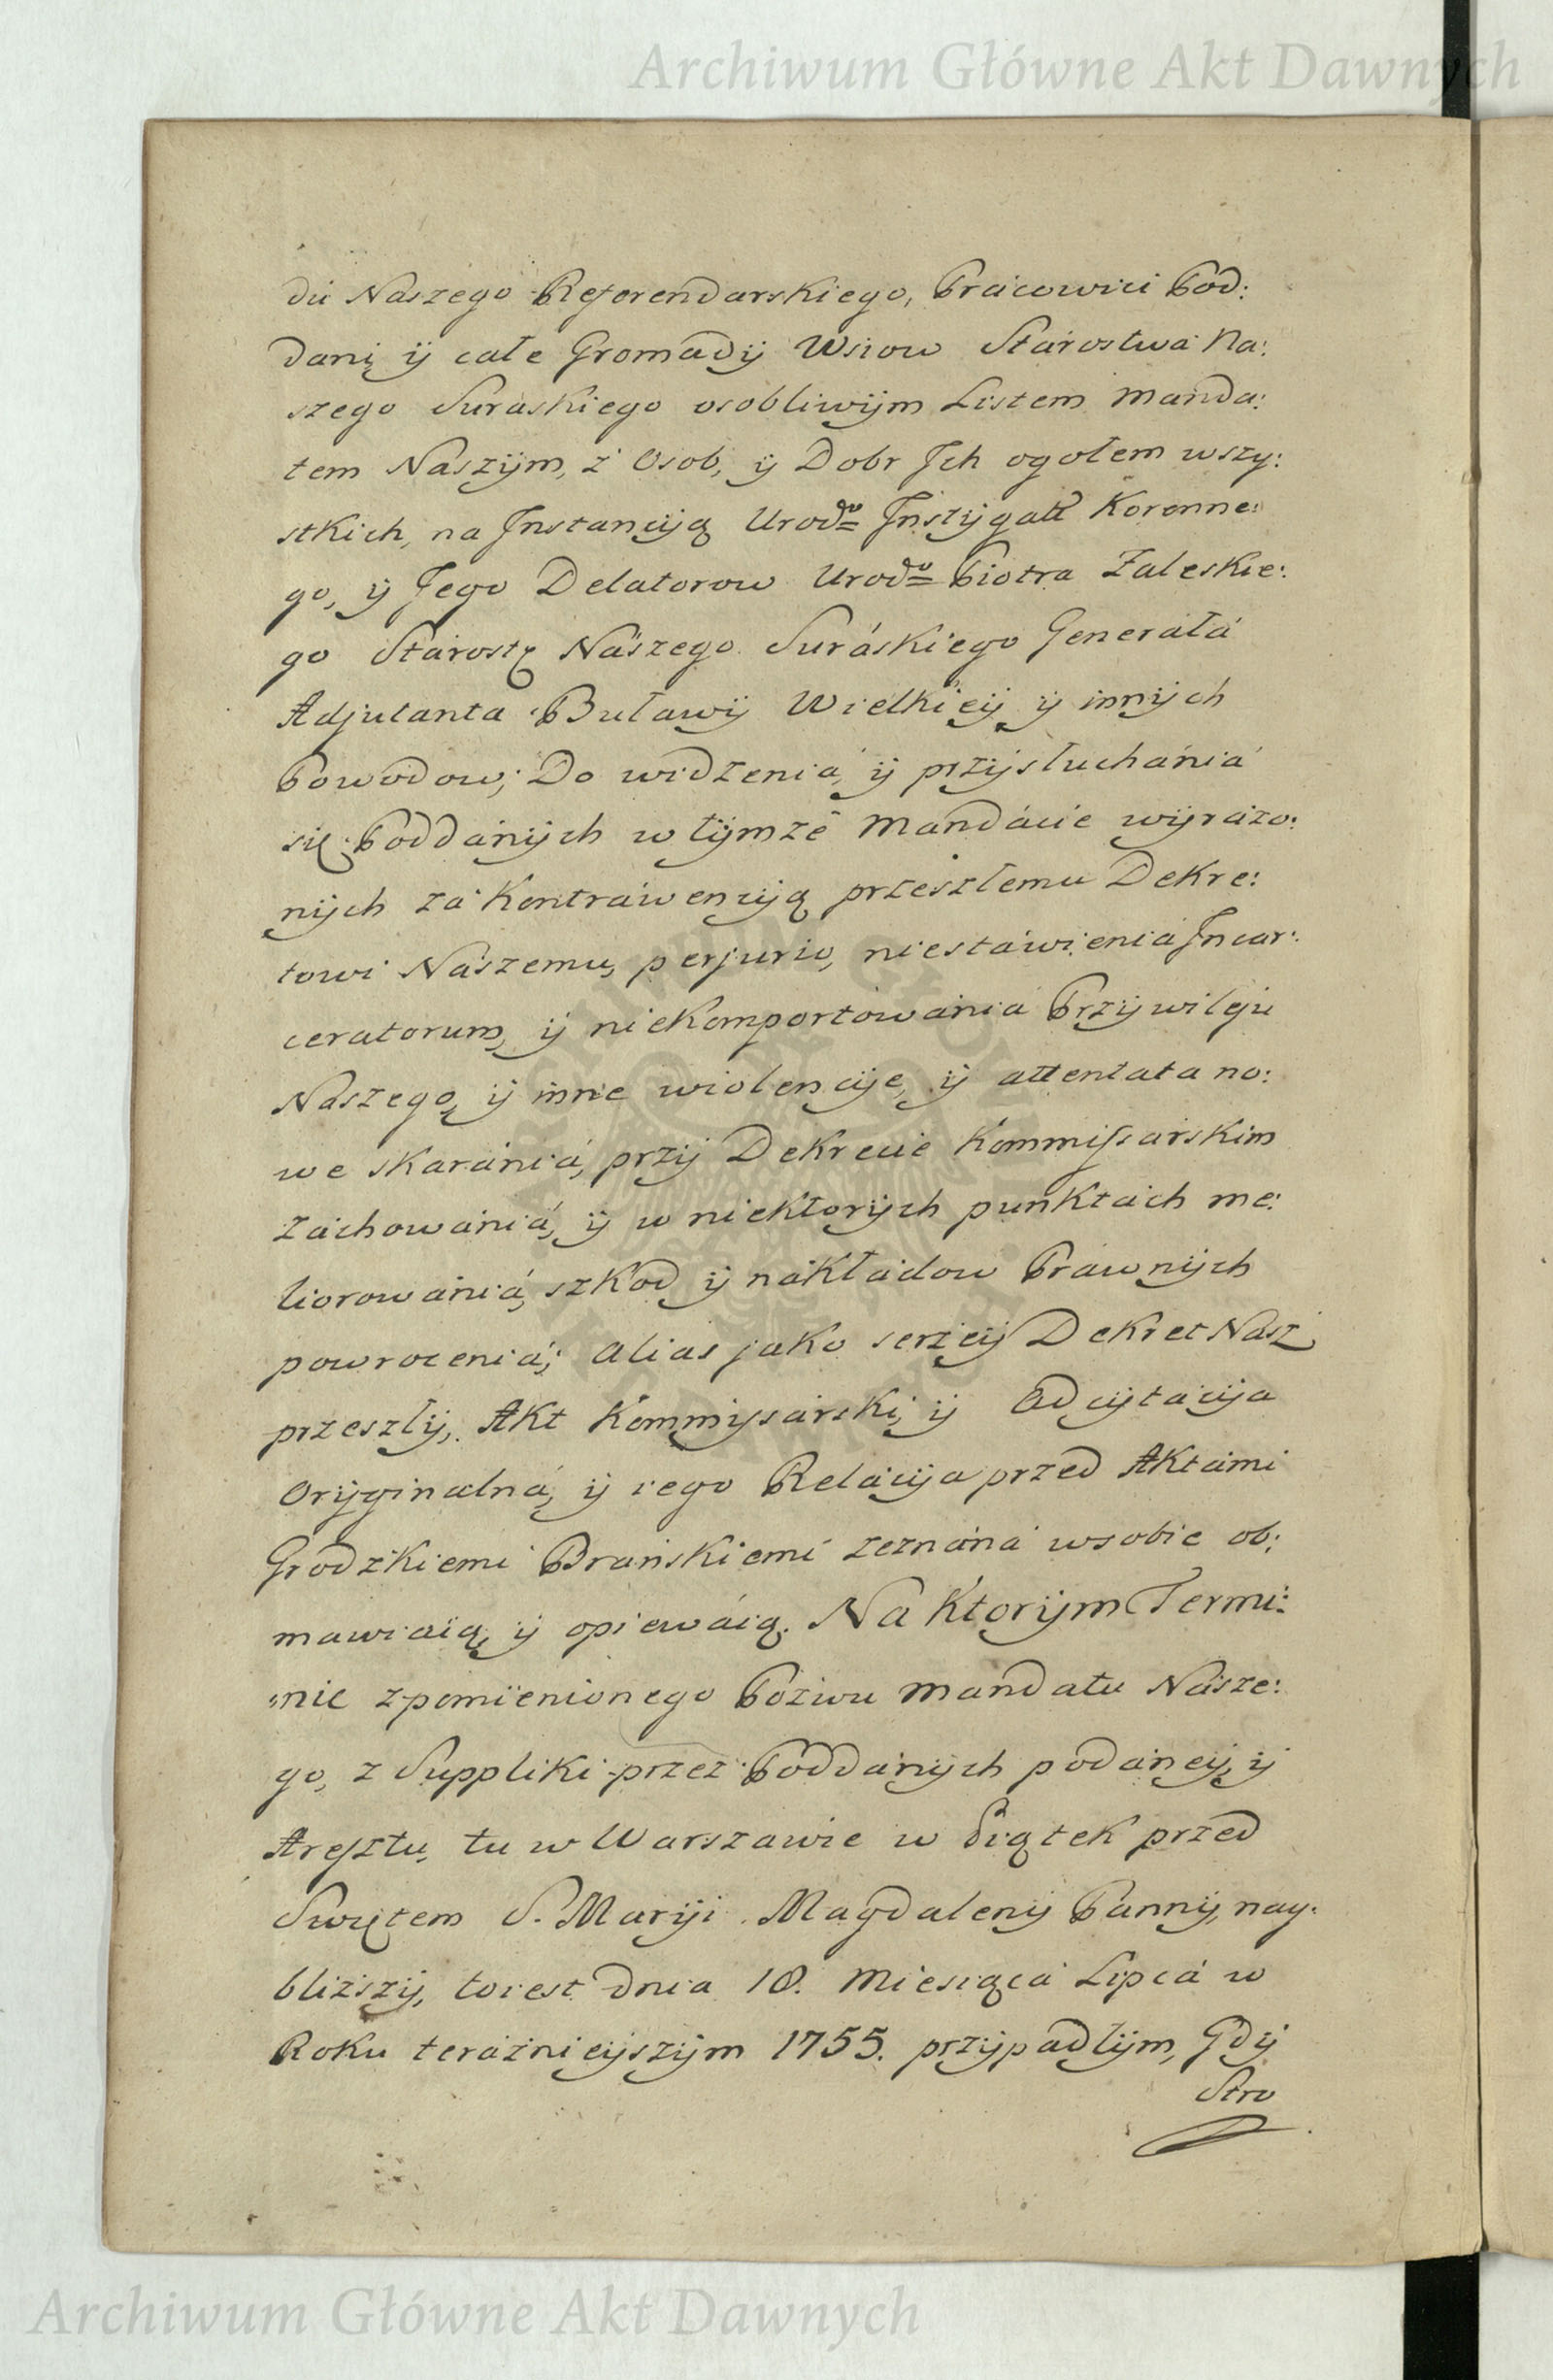 Archiwum Główne Akt Dawnych
du Naszego Referendarskiego, Pracowici Pod:
dani ÿ całe Gromadÿ Wsiow Starostwa Na:
szego Suraskiego osobliwÿm Listem Manda:
tem Naszÿm, z Osob, ÿ Dobr Ich ogołem wszy:
stkich, na Instancÿą Urodgo Instÿgatt Koronne:
go, ÿ Jego Delatorow Urodgo Piotra Zaleskie:
go Starostÿ Nászego Suráskiego Generałá
Adjutanta Buławÿ Wielkieÿ ÿ innÿch
Powodow; Do widzeniá, ÿ przÿsłuchániá
się Poddánÿch w tÿmże Mandácie wÿrázo:
nÿch zá Kontráwencÿą przeszłemu Dekre:
towi Nászemu, perjurio, niestáwieniá Incar:
ceratorum, ÿ niekomportowániá Przÿwileju
Naszego, ÿ inne wiolencÿe, ÿ attentata no:
we skarániá, przÿ Dekrecie Kommissárskim
záchowániá, ÿ w niektorÿch punktách me:
liorowániá, szkod ÿ nákłádow Práwnÿch
powroceniá; alias jako serzeÿ Dekret Nasz
przeszłÿ, Akt Kommissárski, ÿ Adcÿtácÿa
Orÿginalná, ÿ iego Relácÿa przed Aktámi
Grodzkiemi Brańskiemi zeznáná w sobie ob:
mawiáią, ÿ opiewáią. Na Ktorÿm Termi:
nie zpomienionego Pozwu Mandatu Násze:
go, z Suppliki przez Poddánÿch podáneÿ, ÿ
Aresztu, tu w Warszawie w Piątek przed
Swiętem S. Marÿi Magdalenÿ Pánnÿ, nay:
bliższÿ, toiest dnia 18. Miesiącá Lipcá w
Roku teraźnieÿszÿm 1755. przÿpadłÿm, Gdÿ
Stro
Archiwum Główne Akt Dawnych